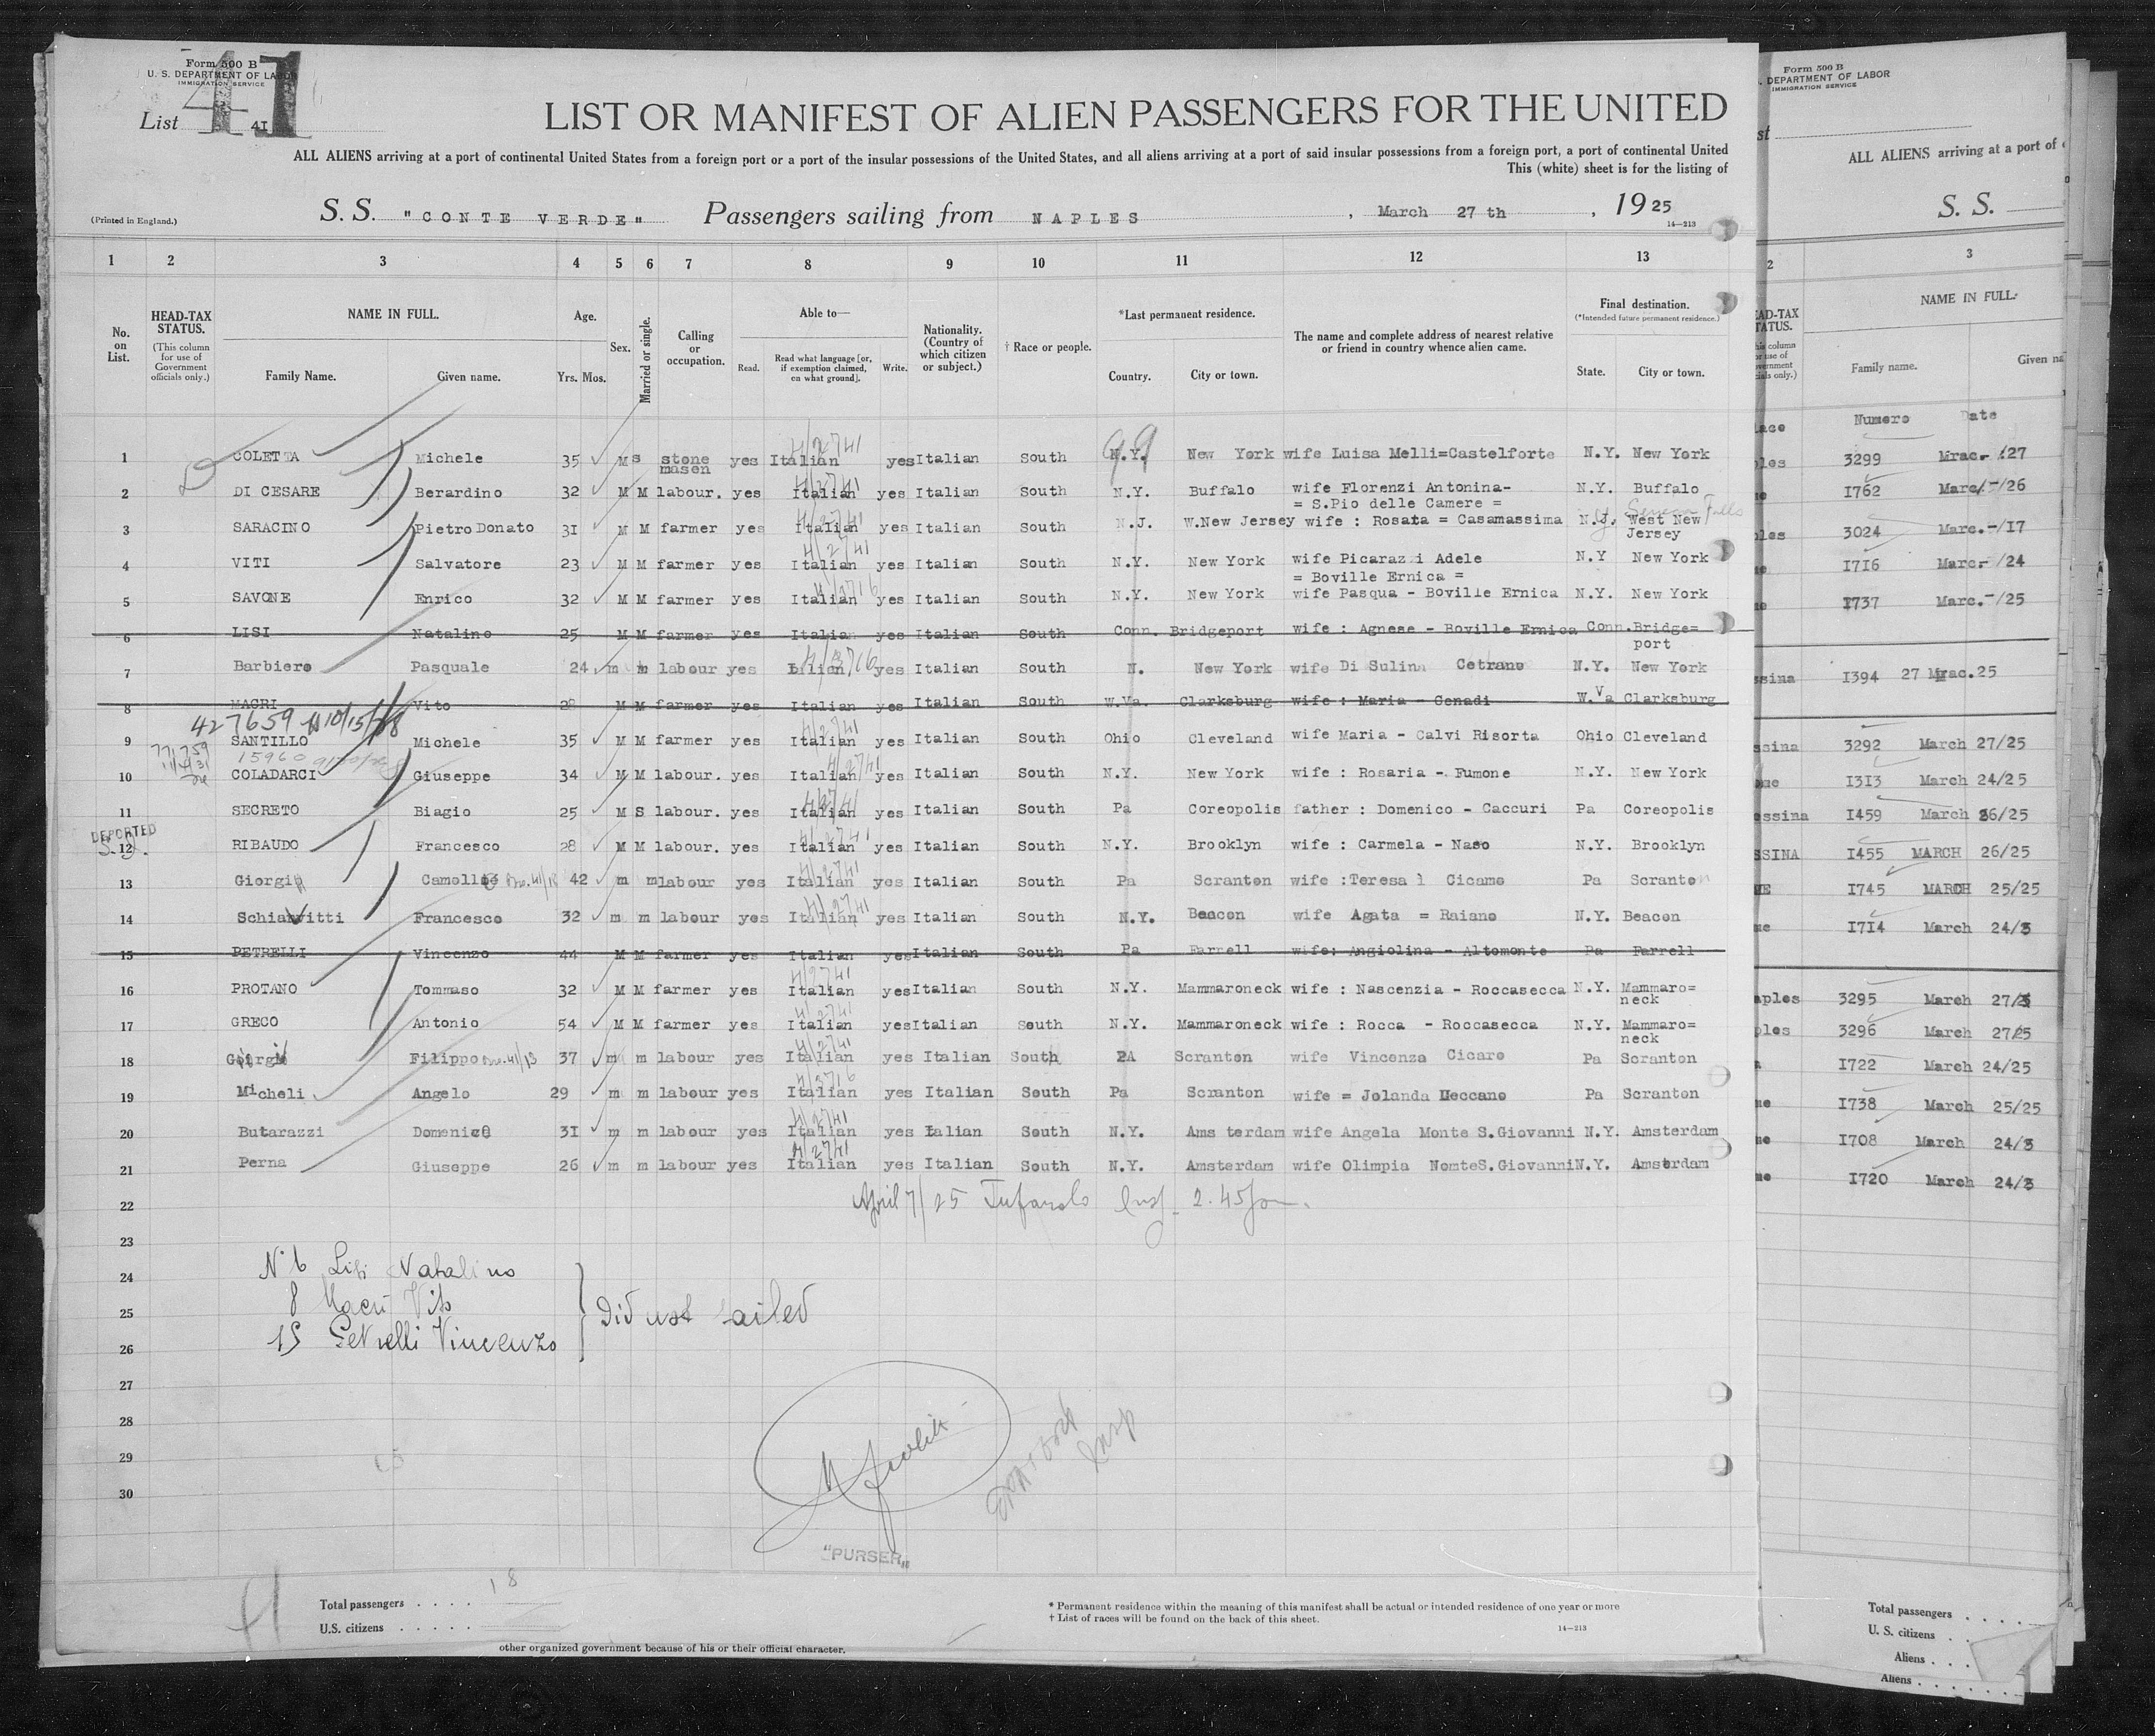 Form 500 B
U. S. DEPARTMENT OF LABOR
IMMIGRATION SERVICE
41
List 41
LIST OR MANIFEST OF ALIEN PASSENGERS FOR THE UNITED
ALL ALIENS arriving at a port of continental United States from a foreign port or a port of the insular possessions of the United States, and all aliens arriving at a port of said insular possessions from a foreign port, a port of continental United
This (white) sheet is for the listing of
(Printed in England.) S. S. "CONTE VERDE" Passengers sailing from NAPLES, March 27 th, 1925
14—213
1 2 3 4 5 6 7 8 9 10 11 12 13
No. on List. HEAD-TAX STATUS. (This column for use of Government officials only.) NAME IN FULL. Family Name. Given name. Age. Yrs. Mos. Sex. Married or single. Calling or occupation. Able to— Read. Read what language [or, if exemption claimed, on what ground]. Write. Nationality. (Country of which citizen or subject.) † Race or people. *Last permanent residence. Country. City or town. The name and complete address of nearest relative or friend in country whence alien came. Final destination. (*Intended future permanent residence.) State. City or town.
99
1 COLETTA Michele 35 M s stone masen yes Italian yes Italian South N.Y. New York wife Luisa Melli=Castelforte N.Y. New York
2 DI CESARE Berardino 32 M M labour. yes Italian yes Italian South N.Y. Buffalo wife Florenzi Antonina- = S.Pio delle Camere = N.Y. Buffalo
Seneca Falls
3 SARACINO Pietro Donato 31 M M farmer yes Italian yes Italian South N.J. W.New Jersey wife : Rosata = Casamassima N.J. West New Jersey
4 VITI Salvatore 23 M M farmer yes Italian yes Italian South N.Y. New York wife Picarazzi Adele = Boville Ernica = N.Y New York
5 SAVONE Enrico 32 M M farmer yes Italian yes Italian South N.Y. New York wife Pasqua - Boville Ernica N.Y. New York
6 LISI Natalino 25 M M farmer yes Italian yes Italian South Conn. Bridgeport wife : Agnese - Boville Ernica Conn. Bridge= port
7 Barbiero Pasquale 24 m m labour yes yes Italian South N. New York wife Di Sulina Cetrano N.Y. New York
8 MACRI Vito 28 M M farmer yes Italian yes Italian South W.Va. Clarksburg wife : Maria - Cenadi W.Va Clarksburg
427659 10/15/
9 SANTILLO Michele 35 M M farmer yes Italian yes Italian South Ohio Cleveland wife Maria - Calvi Risorta Ohio Cleveland
15960
10 COLADARCI Giuseppe 34 M M labour. yes Italian yes Italian South N.Y. New York wife : Rosaria - Fumone N.Y. New York
11 SECRETO Biagio 25 M S labour. yes Italian yes Italian South Pa Coreopolis father : Domenico - Caccuri Pa Coreopolis
DEPORTED
12 RIBAUDO Francesco 28 M M labour. yes Italian yes Italian South N.Y. Brooklyn wife : Carmela - Naso N.Y. Brooklyn
13 Giorgi 42 m m labour yes Italian yes Italian South Pa Scranton wife :Teresa Cicamo Pa Scranton
14 Schiavitti Francesco 32 m m labour yes Italian yes Italian South N.Y. Beacon wife Agata = Raiano N.Y. Beacon
15 PETRELLI Vincenzo 44 M M farmer yes Italian yes Italian South Pa Farrell wife: Angiolina - Altomonte Pa Farrell
16 PROTANO Tommaso 32 M M farmer yes Italian yes Italian South N.Y. Mammaroneck wife : Nascenzia - Roccasecca N.Y. Mammaro= neck
17 GRECO Antonio 54 M M farmer yes Italian yes Italian South N.Y. Mammaroneck wife : Rocca - Roccasecca N.Y. Mammaro= neck
18 Filippo 37 m m labour yes Italian yes Italian South PA Scranton wife Vincenza Cicaro Pa Scranton
19 Micheli Angelo 29 m m labour yes Italian yes Italian South Pa Scranton wife = Jolanda Meccano Pa Scranton
20 Butarazzi Domenico 31 m m labour yes Italian yes Italian South N.Y. Ams terdam wife Angela Monte S.Giovanni N.Y. Amsterdam
21 Perna Giuseppe 26 m m labour yes Italian yes Italian South N.Y. Amsterdam wife Olimpia NomteS.Giovanni N.Y. Amsterdam
22 April 7/25 Tufarolo Insp. 2.45 pm.
23
24 N 6 Lisi Natalino
25 8 Macri Vito Did not sailed
26 15 Petrelli Vincenzo
27
28
29
30
Insp
"PURSER"
Total passengers . . . . 18
U.S. citizens . . . . .
* Permanent residence within the meaning of this manifest shall be actual or intended residence of one year or more
† List of races will be found on the back of this sheet.
14—213
other organized government because of his or their official character.
Form 500 B
DEPARTMENT OF LABOR
IMMIGRATION SERVICE
ALL ALIENS arriving at a port of
S. S.
2 3
NAME IN FULL.
Family name. Given na
Numero Date
3299 Mrac. /27
1762 Marc/-/26
3024 Marc.-/17
1716 Marc- /24
1737 Marc.-/25
1394 27 Mrac.25
3292 March 27/25
1313 March 24/25
1459 March 26/25
1455 MARCH 26/25
1745 MARCH 25/25
1714 March 24/3
3295 March 27/3
3296 March 27/25
1722 March 24/25
1738 March 25/25
1708 March 24/3
1720 March 24/3
Total passengers . . . .
U. S. citizens . .
Aliens . . .
Aliens . . . . . .